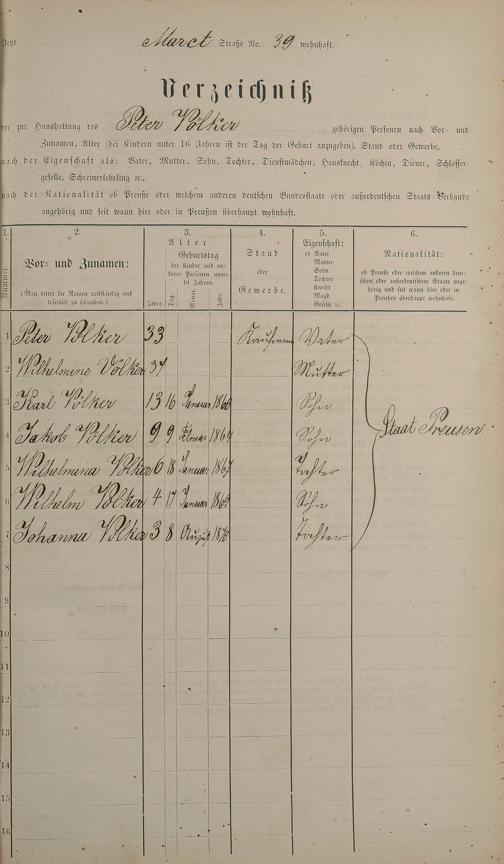 Jetzt Marct Straße No. 39 wohnhaft.
Verzeichniß
der zur Haushaltung des Peter Völker gehörigen Personen nach Vor- und
Zunamen, Alter (bei Kindern unter 16 Jahren ist der Tag der Geburt anzugeben), Stand oder Gewerbe,
nach der Eigenschaft als: Vater, Mutter, Sohn, Tochter, Dienstmädchen, Hausknecht, Köchin, Diener, Schlosser-
geselle, Schreinerlehrling ꝛc.,
nach der Nationalität ob Preuße oder welchem anderen deutschen Bundesstaate oder außerdeutschen Staats-Verbande
angehörig und seit wann hier oder in Preußen überhaupt wohnhaft.
1. 2. 3. 4. 5. 6.
Nummer.
Vor- und Zunamen:
(Man bittet die Namen vollständig und
leserlich zu schreiben.)
Alter
Geburtstag
der Kinder und an-
derer Personen unter
16 Jahren.
Jahre. Tag. Monat. Jahr.
Stand
oder
Gewerbe.
Eigenschaft:
ob Vater
Mutter
Sohn
Tochter
Knecht
Magd
Geselle ꝛc.
Nationalität:
ob Preuße oder welchem anderen deut-
schen oder außerdeutschen Staate ange-
hörig und seit wann hier oder in
Preußen überhaupt wohnhaft.
1 Peter Völker 33 Kaufmann Vater
2 Wilhelmine Völker 37 Mutter
3 Karl Völker 13 16 Januar Sohn
4 Jakob Völker 9 9 Februar 1864 Sohn Staat Preusen
5 Wilhelmina Völker 6 18 Januar 1867 Tochter
6 Wilhelm Völker 4 17 Januar 1869 Sohn
7 Johanna Völker 3 8 August 1870 Tochter
8
9
10
11
12
13
14
15
16